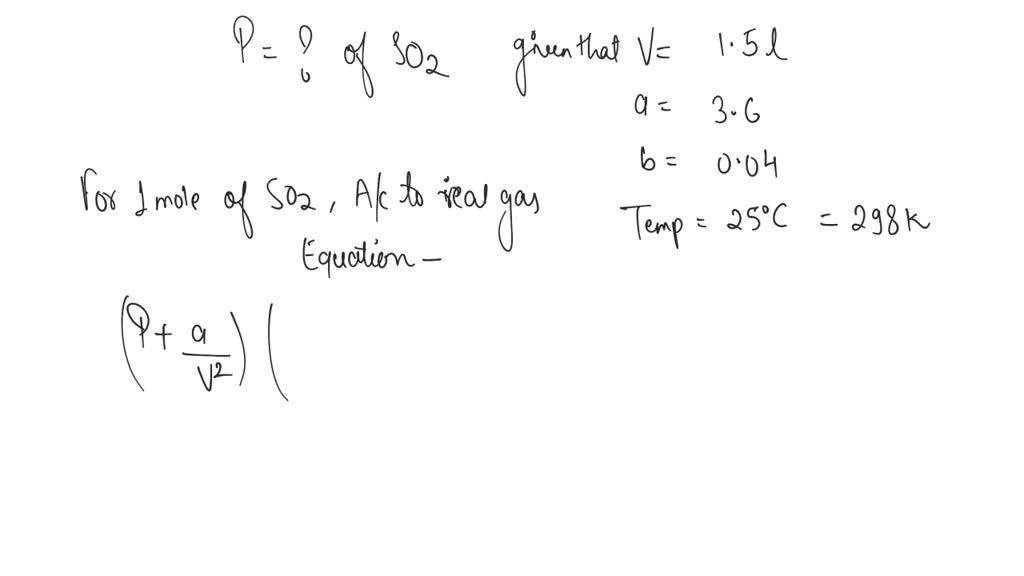 P = ? of SO2 given that V = 1.5 l
a = 3.6
b = 0.04
Temp = 25°C = 298 K
For 1 mole of SO2, A/c to real gas
Equation —
(P + a/V²) (